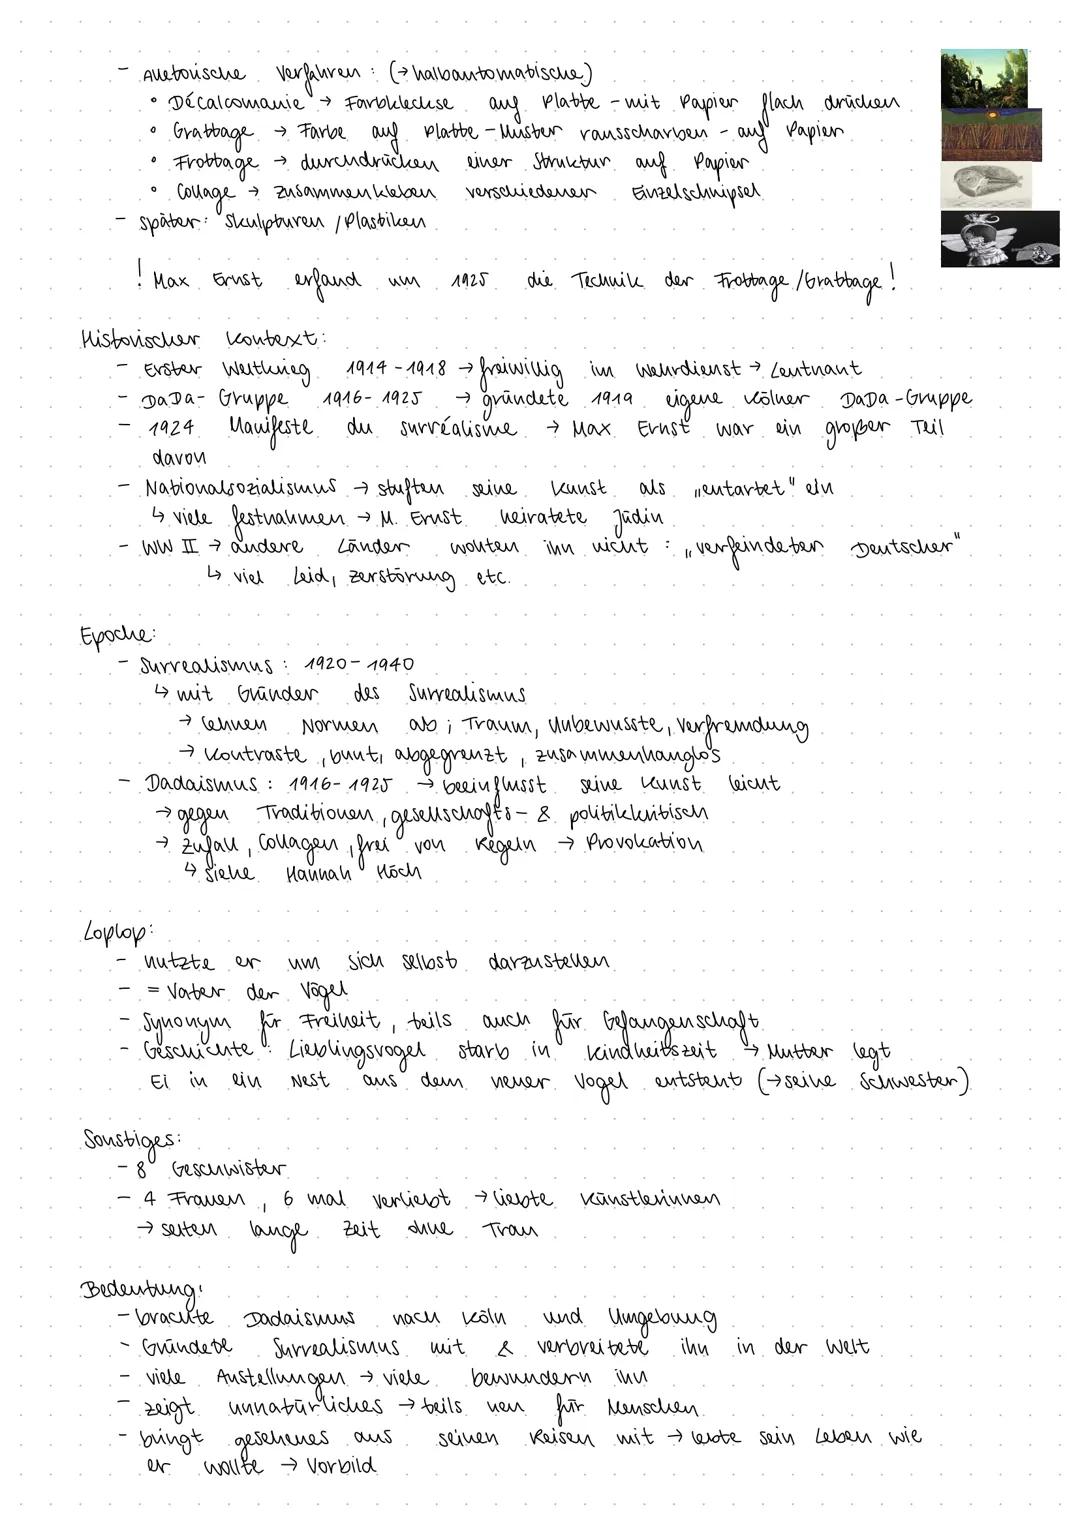 - Aleatorische Verfahren : (→ halbautomatische)
° Décalcomanie → Farbkleckse auf Platte - mit Papier flach drücken
° Grattage → Farbe auf Platte - Muster rausscharben - auf Papier
° Frottage → durchdrücken einer Struktur auf Papier
° Collage → zusammenkleben verschiedener Einzelschnipsel
- später: Skulpturen / Plastiken
! Max Ernst erfand um 1925 die Technik der Frottage / Grattage !
Historischer Kontext:
- Erster Weltkrieg 1914 - 1918 → freiwillig im Wehrdienst → Leutnant
- DaDa- Gruppe 1916- 1925 → gründete 1919 eigene Kölner DaDa -Gruppe
- 1924 Manifeste du surréalisme → Max Ernst war ein großer Teil
davon
- Nationalsozialismus → stuften seine Kunst als „entartet" ein
↳ viele festnahmen → M. Ernst heiratete Jüdin
- WW II → andere Länder wollten ihn nicht : „verfeindeter Deutscher"
↳ viel Leid, zerstörung etc.
Epoche:
- Surrealismus : 1920 - 1940
↳ mit Gründer des Surrealismus
→ lehnen Normen ab ; Traum, Unbewusste, Verfremdung
→ Kontraste, bunt, abgegrenzt, zusammenhanglos
- Dadaismus : 1916- 1925 → beeinflusst seine Kunst leicht
→ gegen Traditionen, gesellschafts- & politikkritisch
→ Zufall, Collagen, frei von Regeln → Provokation
↳ siehe Hannah Höch
Loplop:
- nutzte er um sich selbst darzustellen
- = Vater der Vögel
- Synonym für Freiheit, teils auch für Gefangenschaft
- Geschichte : Lieblingsvogel starb in Kindheitszeit → Mutter legt
Ei in ein Nest aus dem neuer Vogel entsteht (→ seine Schwester)
Sonstiges:
- 8 Geschwister
- 4 Frauen, 6 mal verliebt → liebte Künstlerinnen
→ selten lange Zeit ohne Frau
Bedeutung:
- brachte Dadaismus nach Köln und Umgebung
- Gründete Surrealismus mit & verbreitete ihn in der Welt
- viele Austellungen → viele bewundern ihn
- zeigt unnatürliches → teils neu für Menschen
- bringt gesehenes aus seinen Reisen mit → lebte sein Leben wie
er wollte → Vorbild